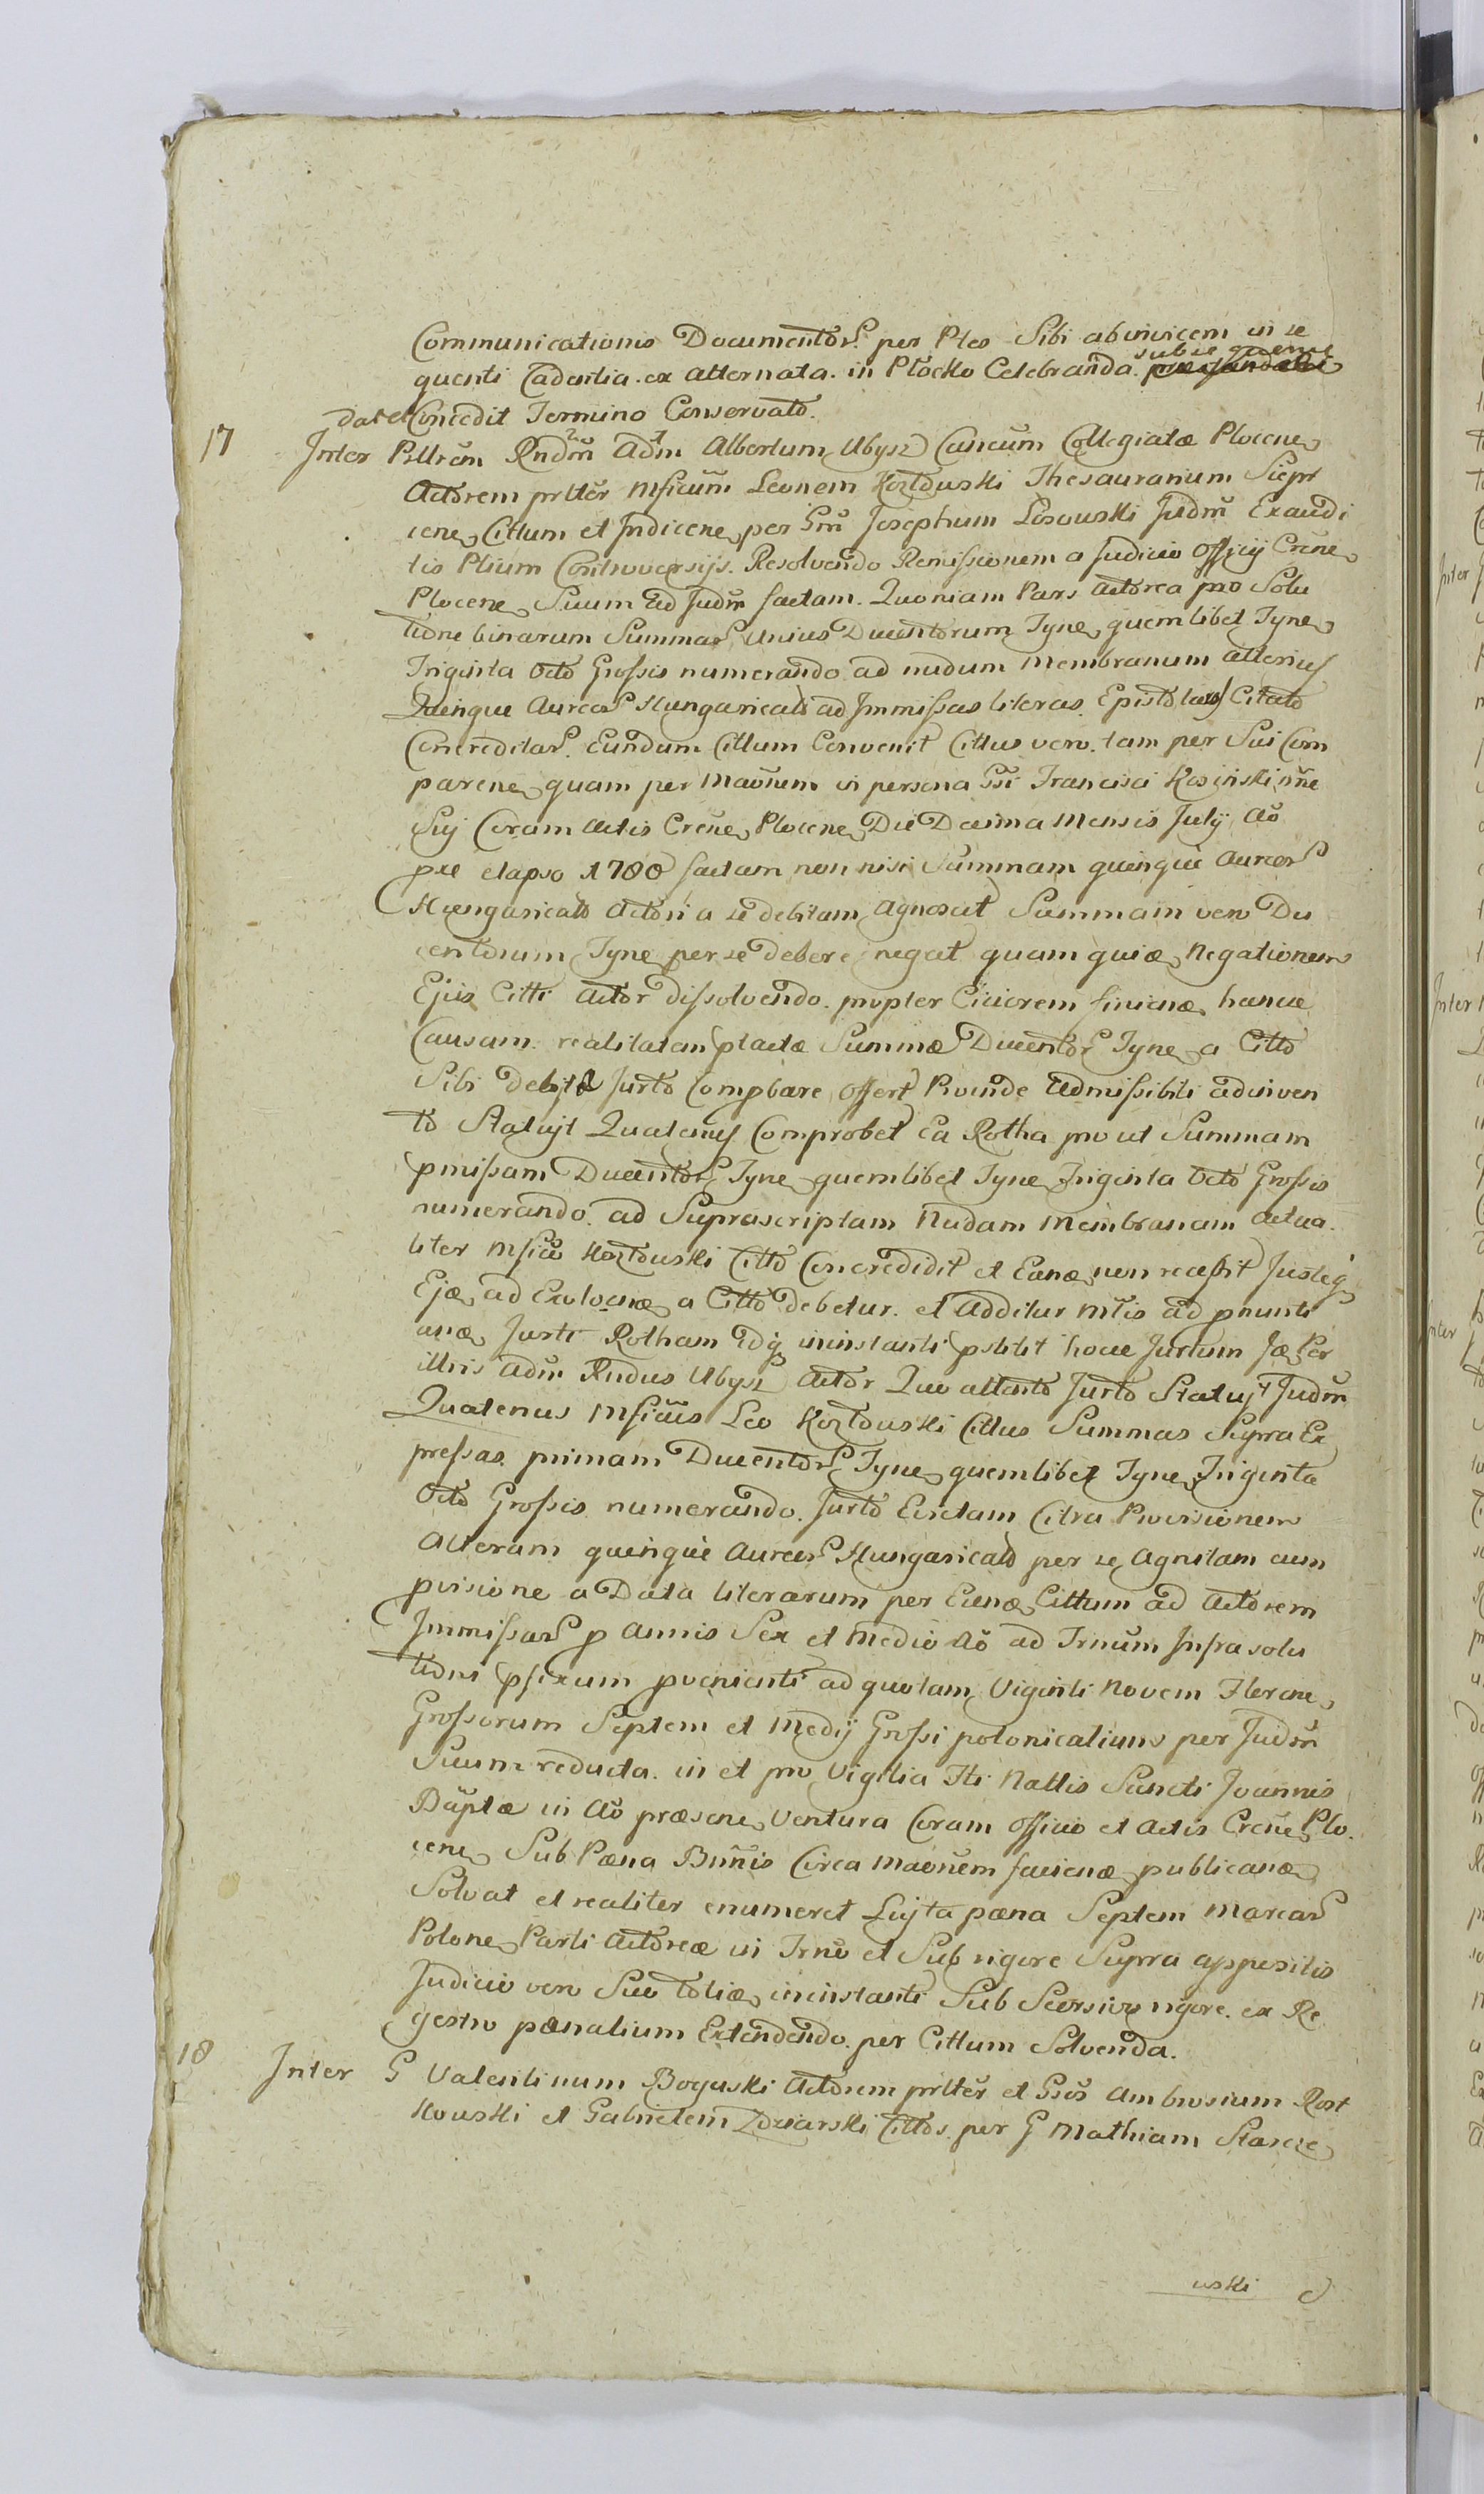 Communicationis Documentor. per Ptes Sibi abinvicem in se
quenti Cadentia. ex alternata. in Płocko Celebranda. subsequenti
dat et Concedit Termino Conservato.
17 Inter Pllrem Rndm Adm Albertum Ubysz Cancum Collegiatæ Plocene
Actorem prltter Mficum Leonem Kozłowski Thesaurarium Sierp
cene Cittum et Indicene per Gm Josephum Losowski Judm Exaudi
tis Ptium Controversijs. Resolvendo Remissionem a Judicio Officij Crene
Plocene Suum ad Judm factam. Quoniam Pars Actorea pro Solu
tione binarum Summar. Unius Ducentorum Tyne quemlibet Tyne
Triginta Octo Grossis numerando ad nudum membranum alterius
Quinque Aureor Hungaricali ad Immissas literas Epistolares Citato
Concreditar. Eundum Cittum Convenit Cittus vero. tam per Sui Com
parene quam per Maonem in persona Gsi Francisci Kosinski nne
Suj Coram Actis Crene Plocene Die Decima Mensis Julij Ao
pre elapso 1780 factam non nisi Summam quinque aureor
Hungaricali Actori a se debitam Agnoscit Summam vero Du
centorum Tyne per se debere negat quam quiæ negationem
Ejus Citti Actor dissolvendo. propter Citiorem finienæ hance
Causam. realitatem ptactæ Summæ Ducentor Tyne a Citto
Sibi debitæ Jurto Compbare offert Proinde Admissibili adinven
to Statuit Quatenus Comprobet Ea Rotha pro ut Summam
pmissam Ducentor Tyne quemlibet Tyne Triginta Octo Grossis
numerando. ad Suprascriptam Nudam Membranam actua.
liter Mfico Kozłowski Citto Concredidit et Eanæ non recepit Justeq
Ejæ ad Exolvenæ a Citto debetur. et Additur Mtis ad pnunti
anæ Jurti Rotham Idq ininstanti pstitit hocce Jurtum Jæ Per
illris adm Rndus Ubysz Actor Quo attento Jurto Statuit Judm
Quatenus Mficus Leo Kozłowski Cittus Summas Supra Ex
pressas. primam Ducentor Tyne quemlibet Tyne Triginta
Octo Grossis numerando. Jurto Evictam Citra Provisionem
Alteram quinque Aureor Hungaricali per se Agnitam cum
pvisione a Data literarum per Eanæ Cittum ad Actorem
Immissar p annis Sex et medio Ao ad Trnum Infra solu
tioni pfixum pvenienti ad quotam Viginti Novem Florene
Grossorum Septem et Medij Grossi polonicaliums per Judm
Suum reducta. in et pro Vigilia Fti Natlis Sancti Joannis
Baptæ in Ao præsene Ventura Coram Officio et Actis Crene Plo.
cene Sub Pæna Bnnis Circa Maonem facienæ publicanæ
Solvat et realiter enumeret Lujta pæna Septem Marcar
Polone Parti Actoreæ in Trno et Sub rigore Supra appositis
Judicio vero Suo totiæ ininstanti Sub Seorsivo rigore. ex Re
gestro pænalium Extendendo. per Cittum Solvenda.
18 Inter G Valentinum Boguski Actorem prltter et Gsos Ambrosium Rost
kowski et Gabrielem Zdziarski Cittos. per G Mathiam Starcze
wski